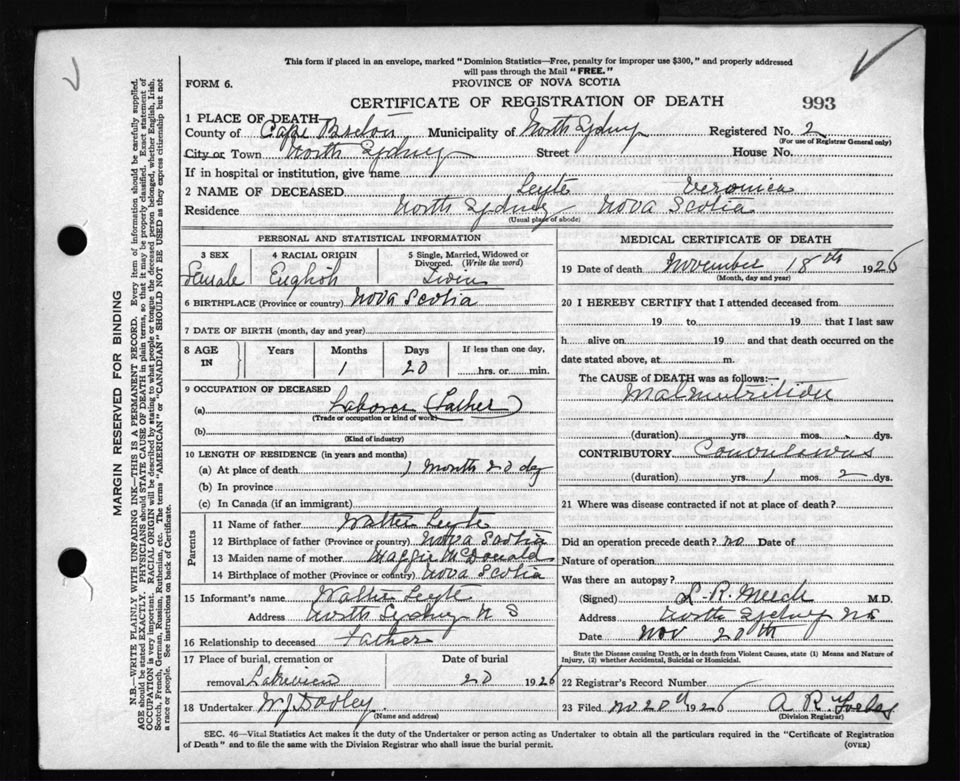 This form if placed in an envelope, marked "Dominion Statistics—Free, penalty for improper use $300," and properly addressed
will pass through the Mail "FREE."
FORM 6.
PROVINCE OF NOVA SCOTIA
CERTIFICATE OF REGISTRATION OF DEATH 993
1 PLACE OF DEATH
County of Cape Breton Municipality of North Sydney Registered No. 2
(For use of Registrar General only)
City or Town North Sydney Street House No.
If in hospital or institution, give name
2 NAME OF DECEASED Leyte Veronica
Residence North Sydney Nova Scotia
(Usual place of abode)
PERSONAL AND STATISTICAL INFORMATION
3 SEX 4 RACIAL ORIGIN 5 Single, Married, Widowed or
Divorced. (Write the word)
Female English
6 BIRTHPLACE (Province or country) Nova Scotia
7 DATE OF BIRTH (month, day and year)
8 AGE IN Years Months Days If less than one day,
1 20 hrs. or min.
9 OCCUPATION OF DECEASED
(a) Laborer (Father)
(Trade or occupation or kind of work)
(b)
(Kind of industry)
10 LENGTH OF RESIDENCE (in years and months)
(a) At place of death 1 month 20 day
(b) In province
(c) In Canada (if an immigrant)
Parents
11 Name of father Walter Leyte
12 Birthplace of father (Province or country) Nova Scotia
13 Maiden name of mother Maggie McDonald
14 Birthplace of mother (Province or country) Nova Scotia
15 Informant's name Walter Leyte
Address North Sydney N S
16 Relationship to deceased Father
17 Place of burial, cremation or Date of burial
removal Lakeview 20 1926
18 Undertaker W J Dooley
(Name and address)
MEDICAL CERTIFICATE OF DEATH
19 Date of death November 18th 1926
(Month, day and year)
20 I HEREBY CERTIFY that I attended deceased from
19 to 19 that I last saw
h alive on 19 and that death occurred on the
date stated above, at m.
The CAUSE OF DEATH was as follows:—
Malnutrition
(duration) yrs. mos. dys.
CONTRIBUTORY Convulsions
(duration) yrs. 1 mos. 2 dys.
21 Where was disease contracted if not at place of death?
Did an operation precede death? no Date of
Nature of operation
Was there an autopsy?
(Signed) L. R. Meech M.D.
Address North Sydney NS
Date Nov 20th
State the Disease causing Death, or in death from Violent Causes, state (1) Means and Nature of
Injury, (2) whether Accidental, Suicidal or Homicidal.
22 Registrar's Record Number
23 Filed 20th 1926 A R
(Division Registrar)
SEC. 46—Vital Statistics Act makes it the duty of the Undertaker or person acting as Undertaker to obtain all the particulars required in the "Certificate of Registration
of Death" and to file the same with the Division Registrar who shall issue the burial permit. (OVER)
MARGIN RESERVED FOR BINDING
N.B.—WRITE PLAINLY WITH UNFADING INK—THIS IS A PERMANENT RECORD. Every item of information should be carefully supplied.
AGE should be stated EXACTLY. PHYSICIANS should STATE CAUSE OF DEATH in plain terms, so that it may be properly classified. Exact statement of
OCCUPATION is very important. RACIAL ORIGIN will be described by stating to what people or tongue the deceased person belonged, whether English, Irish,
Scotch, French, German, Russian, Ruthenian, etc. The terms "AMERICAN" or "CANADIAN" SHOULD NOT BE USED as they express citizenship but not
a race or people. See instructions on back of Certificate.